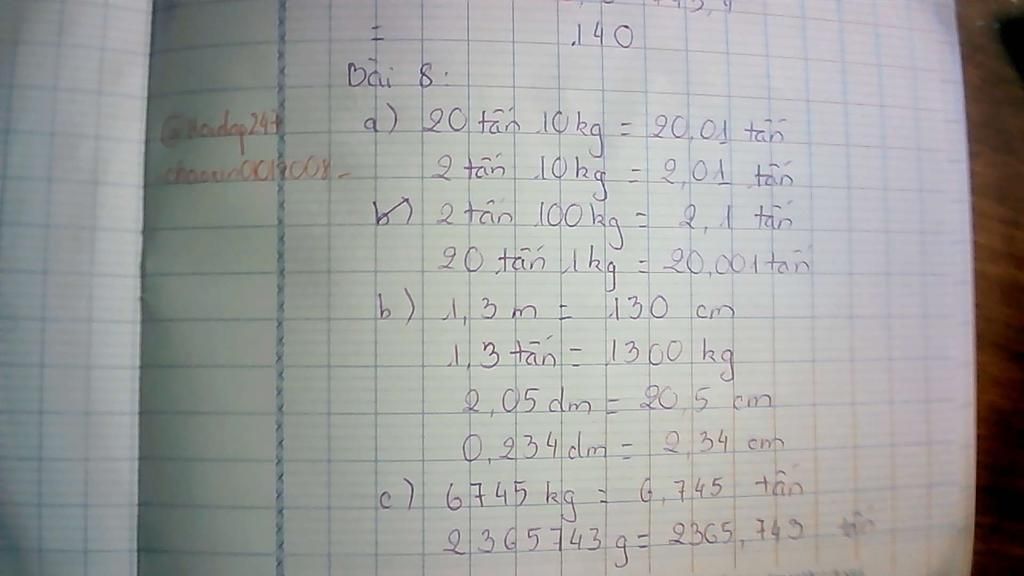 = 140
Bài 8:
a) 20 tấn 10kg = 20,01 tấn
2 tấn 10kg = 2,01 tấn
b) 2 tấn 100kg = 2,1 tấn
20 tấn 1kg = 20,001 tấn
b) 1,3 m = 130 cm
1,3 tấn = 1300 kg
2,05 dm = 20,5 cm
0,234 dm = 2,34 cm
c) 6745 kg = 6,745 tấn
2365743 g = 2365,743